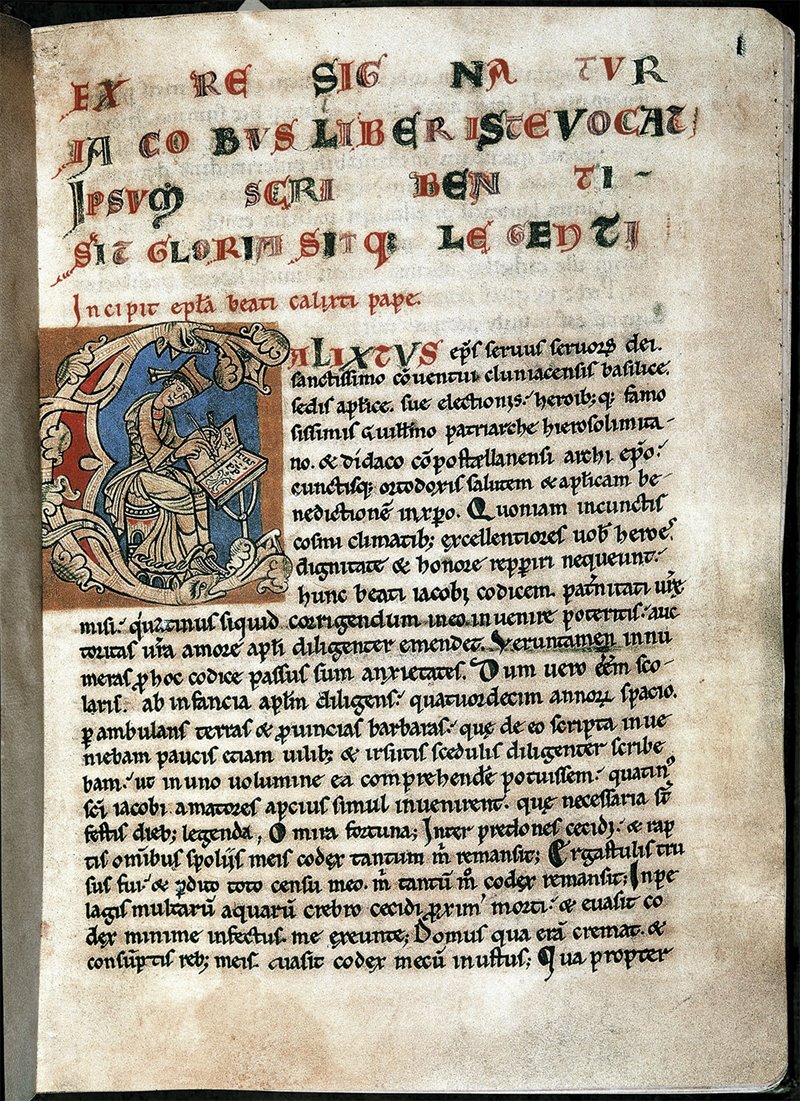 EX RE SIG NA TVR
IACOBVS LIBER ISTE VOCAT
IPSVM SCRIBENTI-
SIT GLORIA SITQ: LEGENTI
Incipit epła beati calixti pape.
CALIXTVS ep̄s seruus seruoꝝ dei.
sanctissimo cōuentui cluniacensis basilice.
sedis apłice. sue electionis. heroib; q; famo
sissimis Guiłłmo patriarche hierosolimita-
no. & didaco cōpostellanensi archi ep̄o.
cunctisq; ortodoxis salutem & apłicam be-
nedictionē in xp̄o. Quoniam in cunctis
cosmi climatib; excellentiores uob̄ heroes
dignitate & honore repperiri nequeunt.
hunc beati iacobi codicem. pat̄nitati ur̄e
misi. quatinus siquid corrigendum in eo inuenire poteritis. auc
toritas ur̄a amore apłi diligenter emendet. Veruntamen innu
meras ꝓ hoc codice passus sum anxietates. Dum uero eēm sco-
laris. ab infancia apłm diligens. quatuordecim annoꝝ spacio.
ꝑambulans terras & ꝓuincias barbaras. quę de eo scripta inue
niebam paucis etiam uilib; & irsutis scedulis diligenter scribe
bam. ut in uno uolumine ea comprehendē potuissem. quatin᾽
sc̄i iacobi amatores apcius simul inuenirent. quę necessaria st̄
festis dieb; legenda, O mira fortuna; Inter predones cecidi. & rap
tis omībus spolijs meis codex tantum m̄ remansit; Ergastulis tru
sus fui. & ꝑdito toto censu meo. m̄ tantū m̊ codex remansit; In pe
lagis multarū aquarū crebro cecidi ꝓxim᾽ morti. & euasit co
dex minime infectus. me exeunte; Domus qua erā cremat. &
consūptis reb; meis. euasit codex mecū inustus; Qua propter